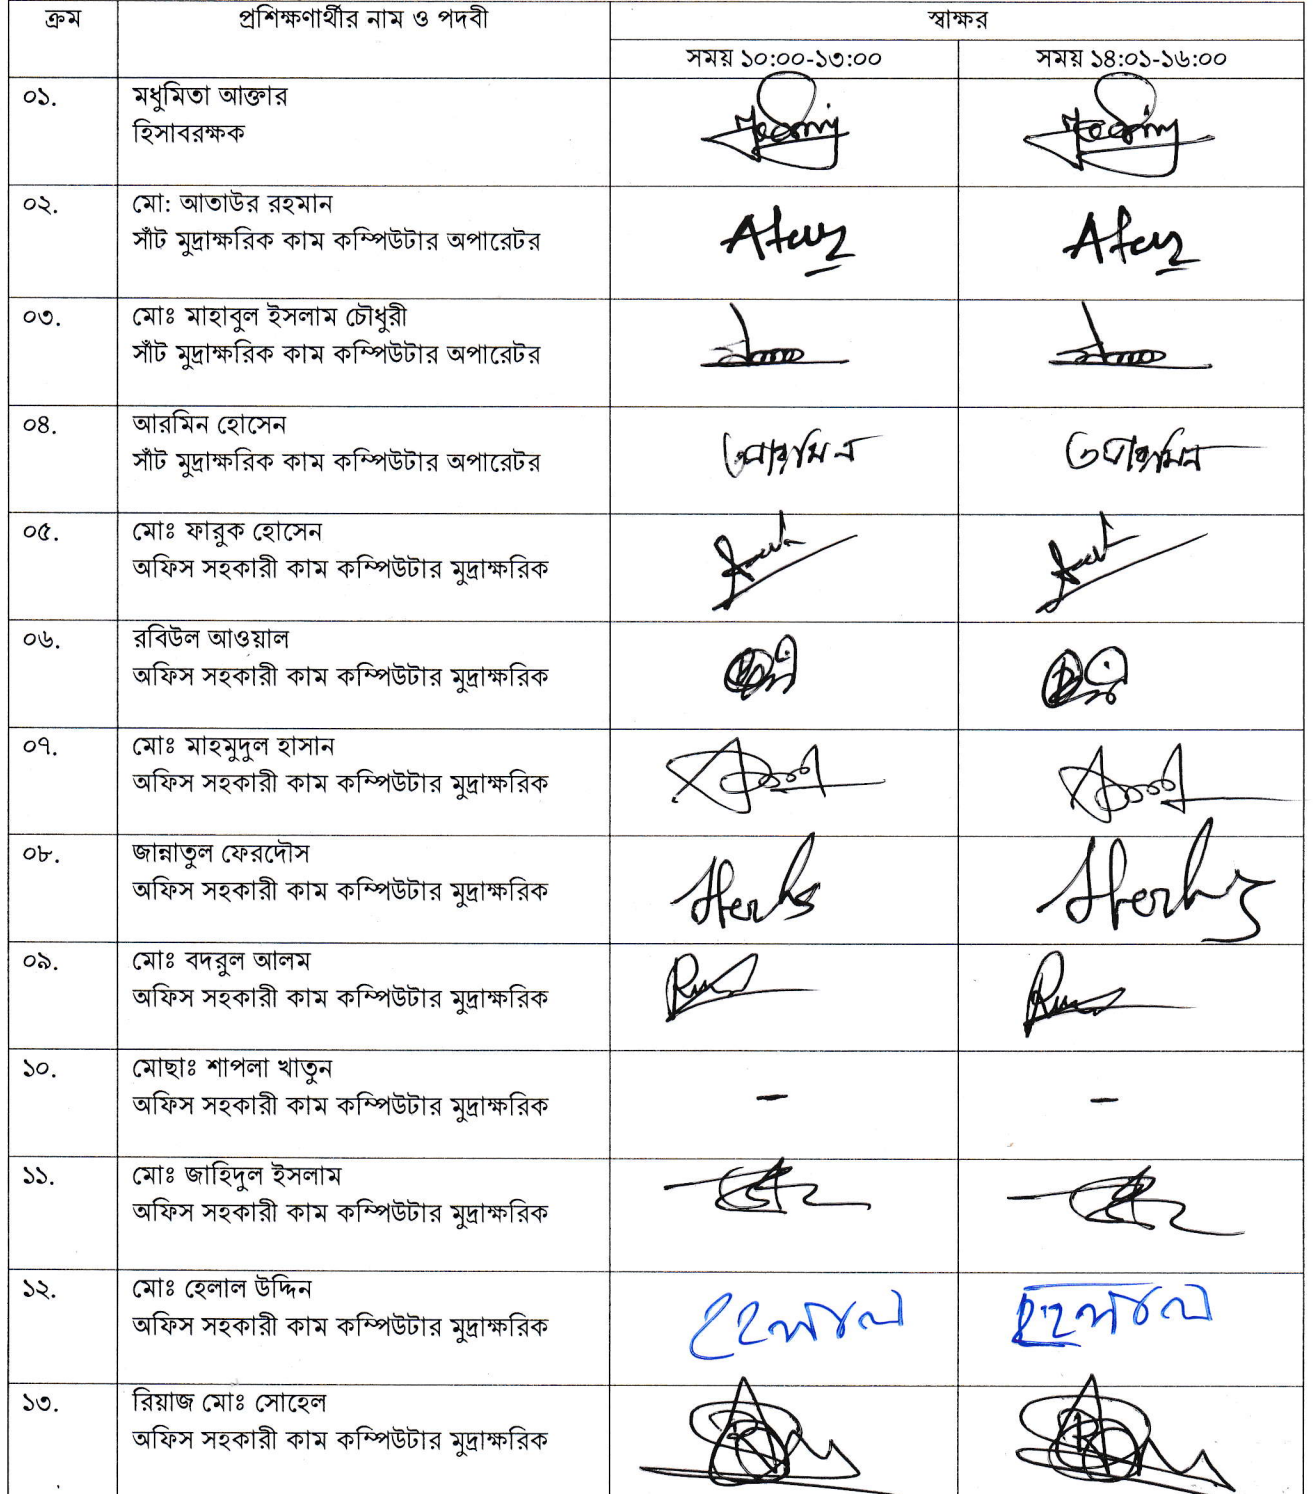 ক্রম প্রশিক্ষণার্থীর নাম ও পদবী স্বাক্ষর
সময় ১০:০০-১৩:০০ সময় ১৪:০১-১৬:০০
০১. মধুমিতা আক্তার
হিসাবরক্ষক
০২. মো: আতাউর রহমান
সাঁট মুদ্রাক্ষরিক কাম কম্পিউটার অপারেটর
০৩. মোঃ মাহাবুল ইসলাম চৌধুরী
সাঁট মুদ্রাক্ষরিক কাম কম্পিউটার অপারেটর
০৪. আরমিন হোসেন
সাঁট মুদ্রাক্ষরিক কাম কম্পিউটার অপারেটর আরমিন আরমিন
০৫. মোঃ ফারুক হোসেন
অফিস সহকারী কাম কম্পিউটার মুদ্রাক্ষরিক
০৬. রবিউল আওয়াল
অফিস সহকারী কাম কম্পিউটার মুদ্রাক্ষরিক
০৭. মোঃ মাহমুদুল হাসান
অফিস সহকারী কাম কম্পিউটার মুদ্রাক্ষরিক
০৮. জান্নাতুল ফেরদৌস
অফিস সহকারী কাম কম্পিউটার মুদ্রাক্ষরিক
০৯. মোঃ বদরুল আলম
অফিস সহকারী কাম কম্পিউটার মুদ্রাক্ষরিক
১০. মোছাঃ শাপলা খাতুন
অফিস সহকারী কাম কম্পিউটার মুদ্রাক্ষরিক - -
১১. মোঃ জাহিদুল ইসলাম
অফিস সহকারী কাম কম্পিউটার মুদ্রাক্ষরিক
১২. মোঃ হেলাল উদ্দিন
অফিস সহকারী কাম কম্পিউটার মুদ্রাক্ষরিক হেলাল হেলাল
১৩. রিয়াজ মোঃ সোহেল
অফিস সহকারী কাম কম্পিউটার মুদ্রাক্ষরিক